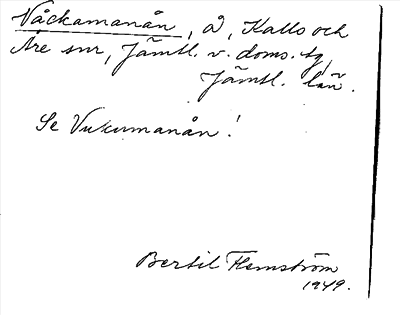 Våckamanån, å, Kalls och
Åre snr, Jämtl. v. doms. tg,
Jämtl. län.
Se Vukumanån!
Bertil Flemström
1949.